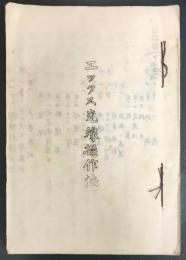 エックス光線操作法